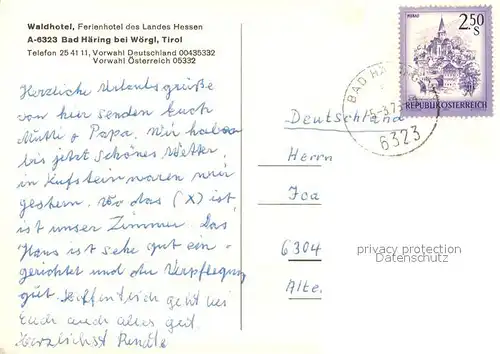 Waldhotel, Ferienhotel des Landes Hessen
A-6323 Bad Häring bei Wörgl, Tirol
Telefon 25 41 11, Vorwahl Deutschland 00435332
Vorwahl Österreich 05332
Herzliche Urlaubsgrüße
von hier senden Euch
Mutti & Papa. Wir haben
bis jetzt schönes Wetter,
in Kufstein waren wir
gestern. Wo das (X) ist,
ist unser Zimmer. Das
Haus ist sehr gut ein-
gerichtet und die Verpflegung
gut. Hoffentlich geht es bei
Euch auch alles gut.
Herzlichst Renate
MURAU
2.50
S
REPUBLIK ÖSTERREICH
BAD HÄ
6323
Deutschland
Herrn
6304
privacy protection
Datenschutz